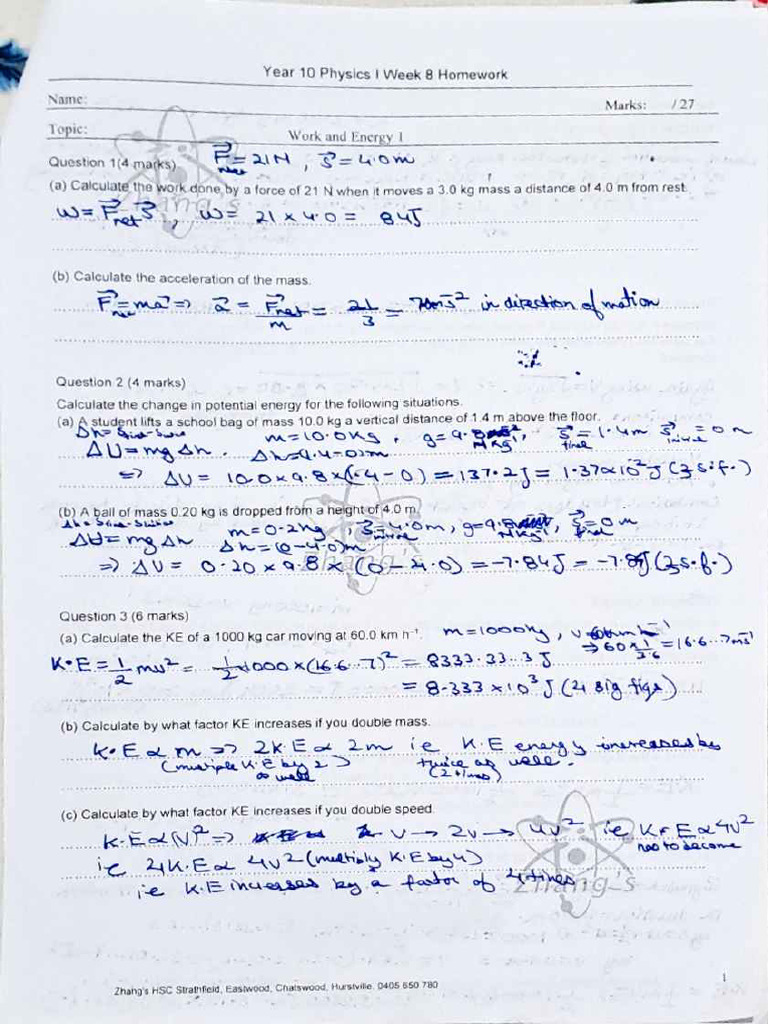 Year 10 Physics I Week 8 Homework
Name:
Marks: /27
Topic:
Work and Energy 1
Question 1(4 marks) F = 21N , s = 4.0m
(a) Calculate the work done by a force of 21 N when it moves a 3.0 kg mass a distance of 4.0 m from rest.
W = Fnet s , W = 21 × 4.0 = 84J
(b) Calculate the acceleration of the mass.
F = ma => a = Fnet/m = 21/3 = in direction of motion
Question 2 (4 marks)
Calculate the change in potential energy for the following situations.
(a) A student lifts a school bag of mass 10.0 kg a vertical distance of 1.4 m above the floor.
m = 10.0kg , g = 9.8 , s final = 1.4m s initial = 0 m
ΔU = mgΔh .
=> ΔU = 10.0 × 9.8 × (1.4 - 0) = 137.2J = 1.37×10² J (3 s.f.)
(b) A ball of mass 0.20 kg is dropped from a height of 4.0 m.
m = 0.2kg s initial = 4.0m, g = 9.8 , s final = 0 m
ΔU = mgΔh Δh = (0-4.0)m
=> ΔU = 0.20 × 9.8 × (0 - 4.0) = -7.84J = (3 s.f.)
Question 3 (6 marks)
(a) Calculate the KE of a 1000 kg car moving at 60.0 km h⁻¹. m = 1000kg , v
=> 60 × 1/3.6 = 16.6..7ms⁻¹
K.E = 1/2 mv² = 1/2 × 1000 × (16.6..7)² = 8333.33..3 J
= 8.333 × 10³ J (4 sig figs)
(b) Calculate by what factor KE increases if you double mass.
K.E ∝ m => 2K.E ∝ 2m ie K.E energy increases by
(multiple K.E by 2) twice as well.
as well (2 times)
(c) Calculate by what factor KE increases if you double speed.
K.E ∝ (v)² => v → 2v → 4v² ie K.E ∝ 4v²
has to become
ie 4K.E ∝ 4v² (multiply K.E by 4)
ie K.E increases by a factor of 4 times
Zhang's
1
Zhang's HSC Strathfield, Eastwood, Chatswood, Hurstville. 0405 650 780